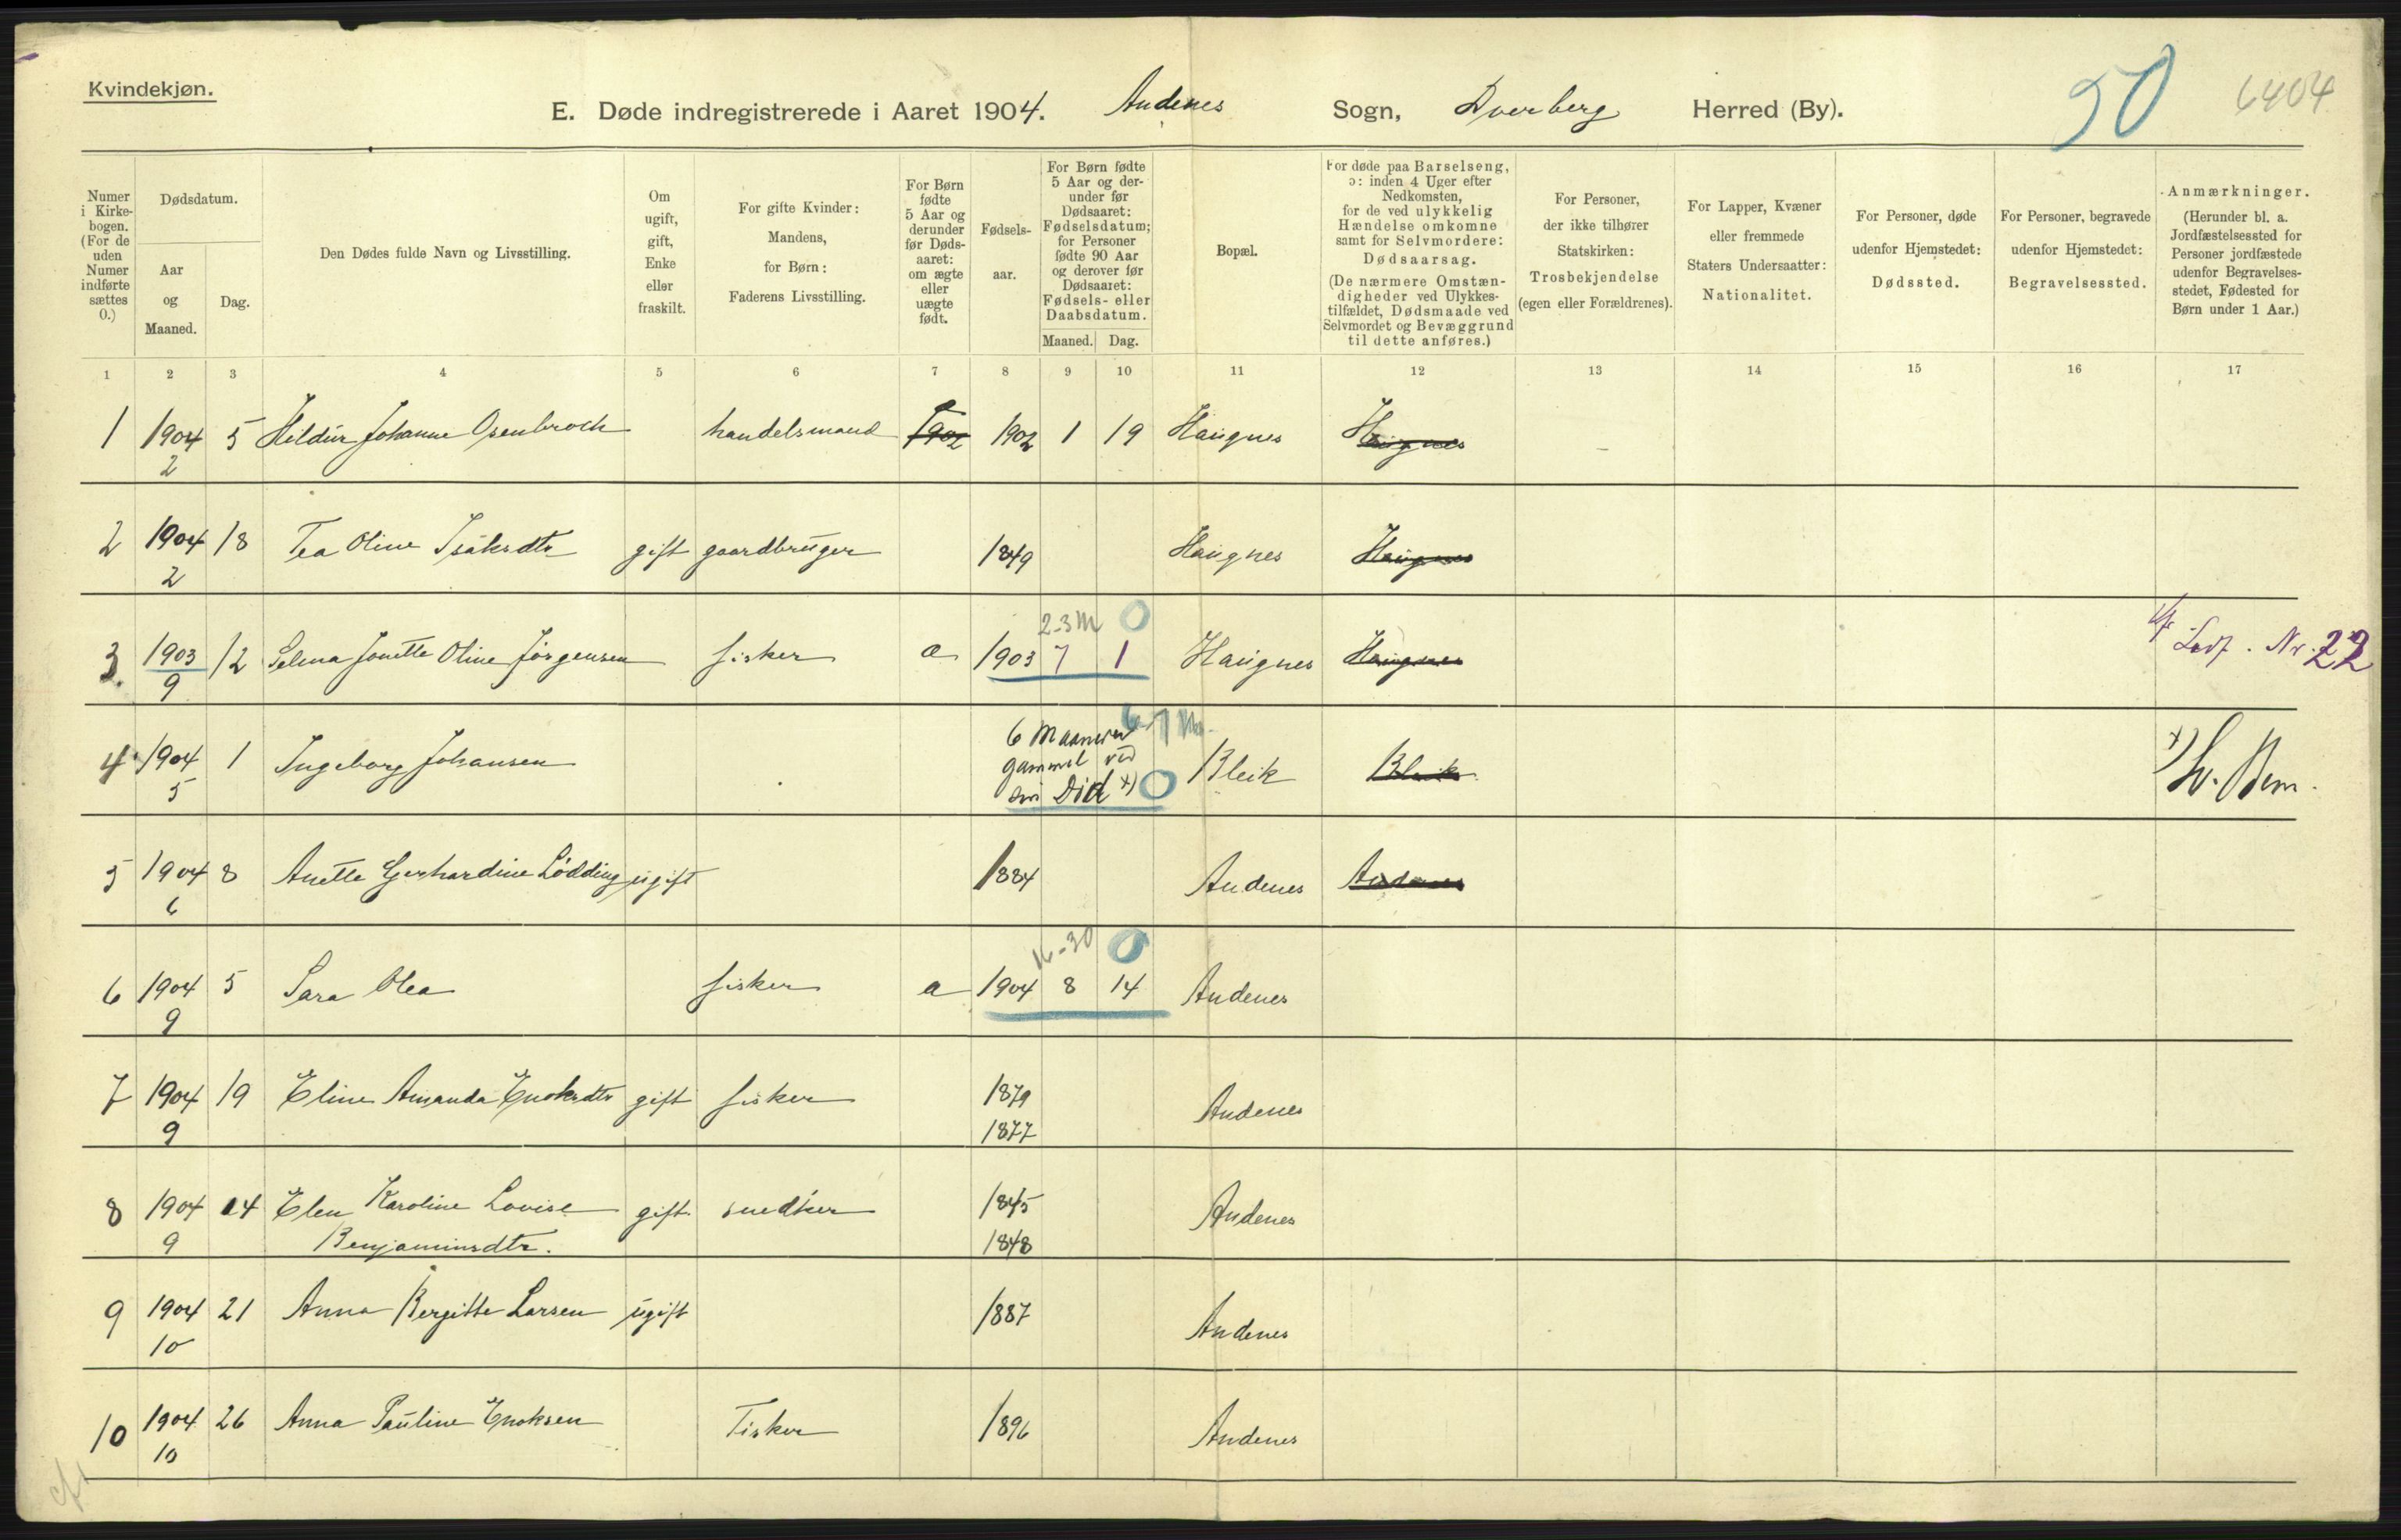 Kvindekjøn.
E. Døde indregistrerede i Aaret 1904. Andenes Sogn, Dverberg Herred (By).
50 6404
Numer i Kirkebogen. (For de uden Numer indførte sættes 0.)
Dødsdatum.
Aar og Maaned.
Dag.
Den Dødes fulde Navn og Livsstilling.
Om ugift, gift, Enke eller fraskilt.
For gifte Kvinder: Mandens, for Børn: Faderens Livsstilling.
For Børn fødte 5 Aar og derunder før Dødsaaret: om ægte eller uægte født.
Fødselsaar.
For Børn fødte 5 Aar og derunder før Dødsaaret: Fødselsdatum; for Personer fødte 90 Aar og derover før Dødsaaret: Fødsels- eller Daabsdatum.
Maaned. Dag.
Bopæl.
For døde paa Barselseng, ɔ: inden 4 Uger efter Nedkomsten, for de ved ulykkelig Hændelse omkomne samt for Selvmordere: Dødsaarsag. (De nærmere Omstændigheder ved Ulykkestilfældet, Dødsmaade ved Selvmordet og Bevæggrund til dette anføres.)
For Personer, der ikke tilhører Statskirken: Trosbekjendelse (egen eller Forældrenes).
For Lapper, Kvæner eller fremmede Staters Undersaatter: Nationalitet.
For Personer, døde udenfor Hjemstedet: Dødssted.
For Personer, begravede udenfor Hjemstedet: Begravelsessted.
Anmærkninger. (Herunder bl. a. Jordfæstelsessted for Personer jordfæstede udenfor Begravelsesstedet, Fødested for Børn under 1 Aar.)
1 2 3 4 5 6 7 8 9 10 11 12 13 14 15 16 17
1 1904 5 Hildur Johanne Osenbroch handelsmand 1902 1902 1 19 Haugnes Haugnes
2
2 1904 18 Tea Oline Isaksdtr gift gaardbruger 1849 Haugnes Haugnes
2
2-3 M 0
3 1903 12 Selma Jonette Oline Jørgensen fisker a 1903 7 1 Haugnes Haugnes Nr. 22
9
6 Maaneder 6-7 M.
4 1904 1 Ingeborg Johansen gammel ved Bleik Bleik
5 sin Død x) 0
x) Sv. Bem.
5 1904 8 Anette Gerhardine Lødding ugift 1884 Andenes Andenes
6
16-30 0
6 1904 5 Sara Olea fisker a 1904 8 14 Andenes
9
7 1904 19 Eline Amanda Enoksdtr gift fisker 1879 Andenes
9 1877
8 1904 14 Elen Karoline Lovise gift snedker 1845 Andenes
9 Benjaminsdtr. 1848
9 1904 21 Anna Bergitte Larsen ugift 1887 Andenes
10
10 1904 26 Anna Pauline Enoksen Fisker 1896 Andenes
10